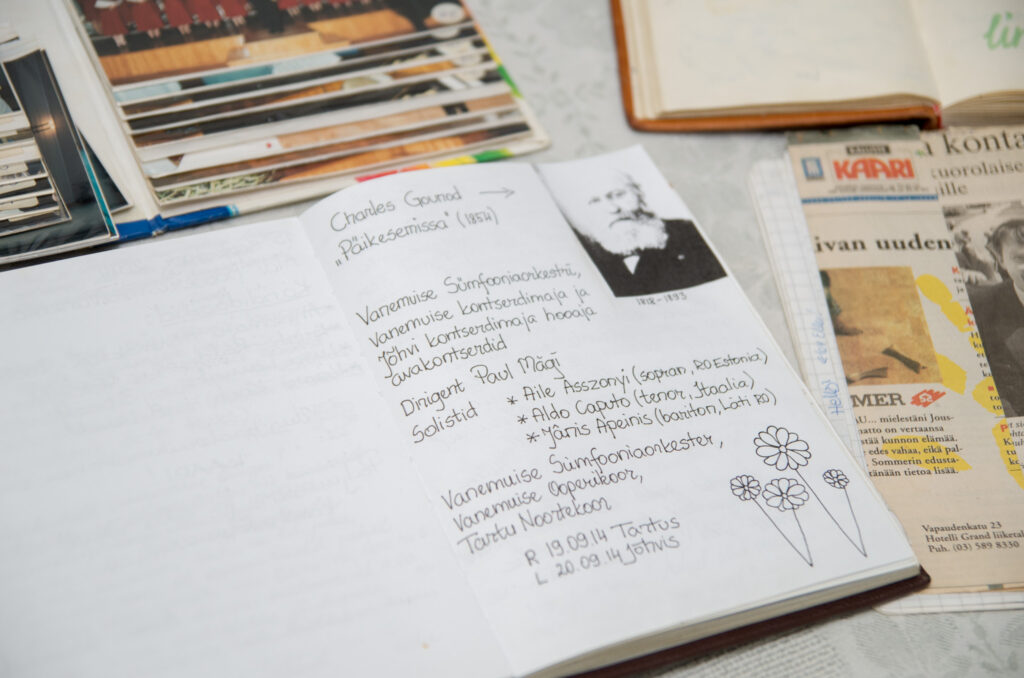 Charles Gounod →
„Päikesemissa" (1854)
1818-1893
Vanemuise Sümfooniaorkestri,
Vanemuise kontserdimaja ja
Jõhvi kontserdimaja hooaja
avakontserdid
Dirigent Paul Mägi
Solistid * Aile Asszonyi (sopran, RO Estonia)
* Aldo Caputo (tenor, Itaalia)
* Jānis Apeinis (bariton, Läti RO)
Vanemuise Sümfooniaorkester,
Vanemuise Ooperikoor,
Tartu Noortekoor
R 19.09.14 Tartus
L 20.09.14 Jõhvis
lin
KAARI
konta
uorolaise
ille
ivan uuden
MER
AU... mielestäni Jous-
matto on vertaansa
stää kunnon elämää.
edes vahaa, eikä pal-
Sommerin edusta-
tänään tietoa lisää.
Vapaudenkatu 23
Hotelli Grand liiketal
Puh. (03) 589 8330